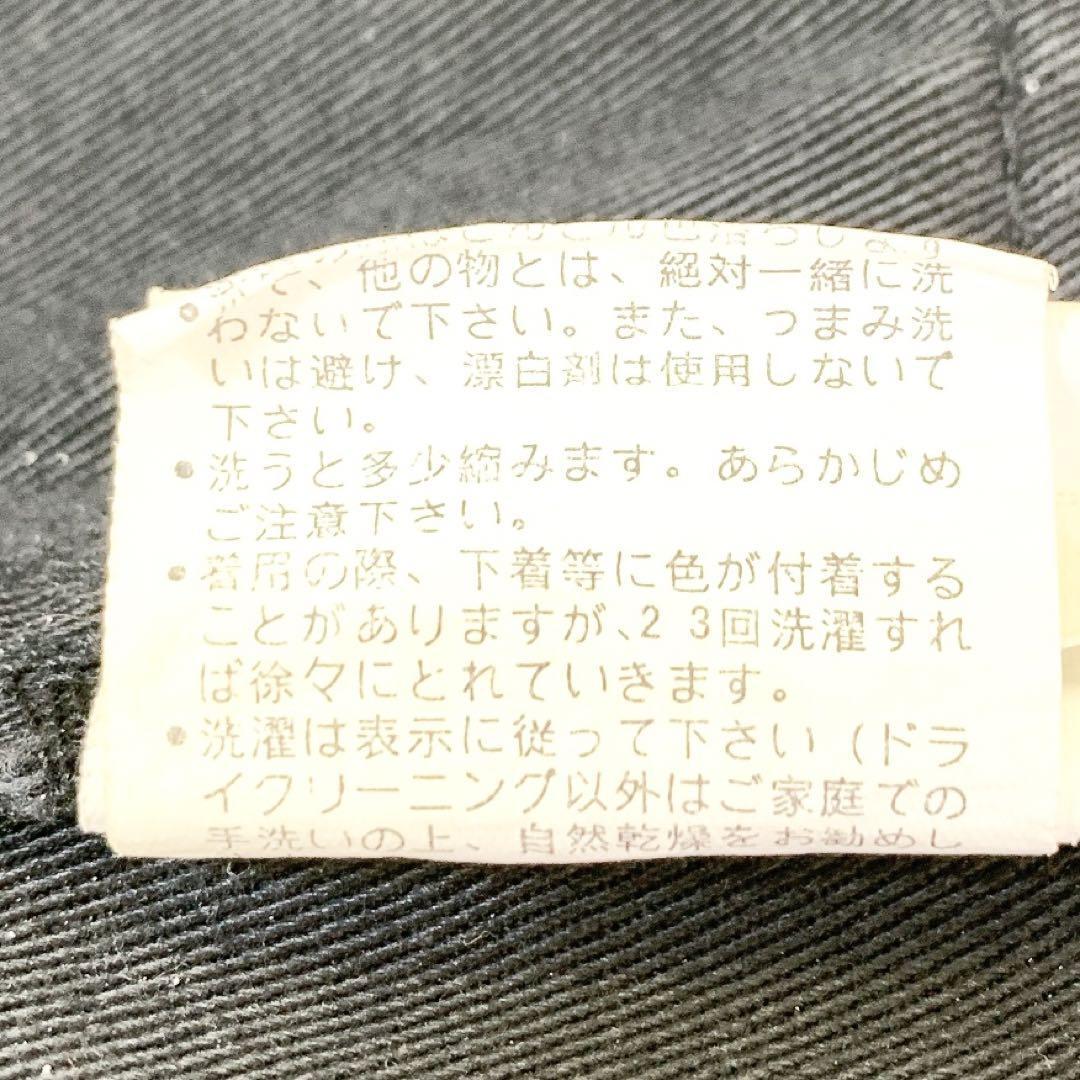 色落ちしま
ので、他の物とは、絶対一緒に洗
わないで下さい。また、つまみ洗
いは避け、漂白剤は使用しないで
下さい。
●洗うと多少縮みます。あらかじめ
ご注意下さい。
●着用の際、下着等に色が付着する
ことがありますが、2 3回洗濯すれ
ば徐々にとれていきます。
●洗濯は表示に従って下さい (ドラ
イクリーニング以外はご家庭での
手洗いの上、自然乾燥をお勧めし